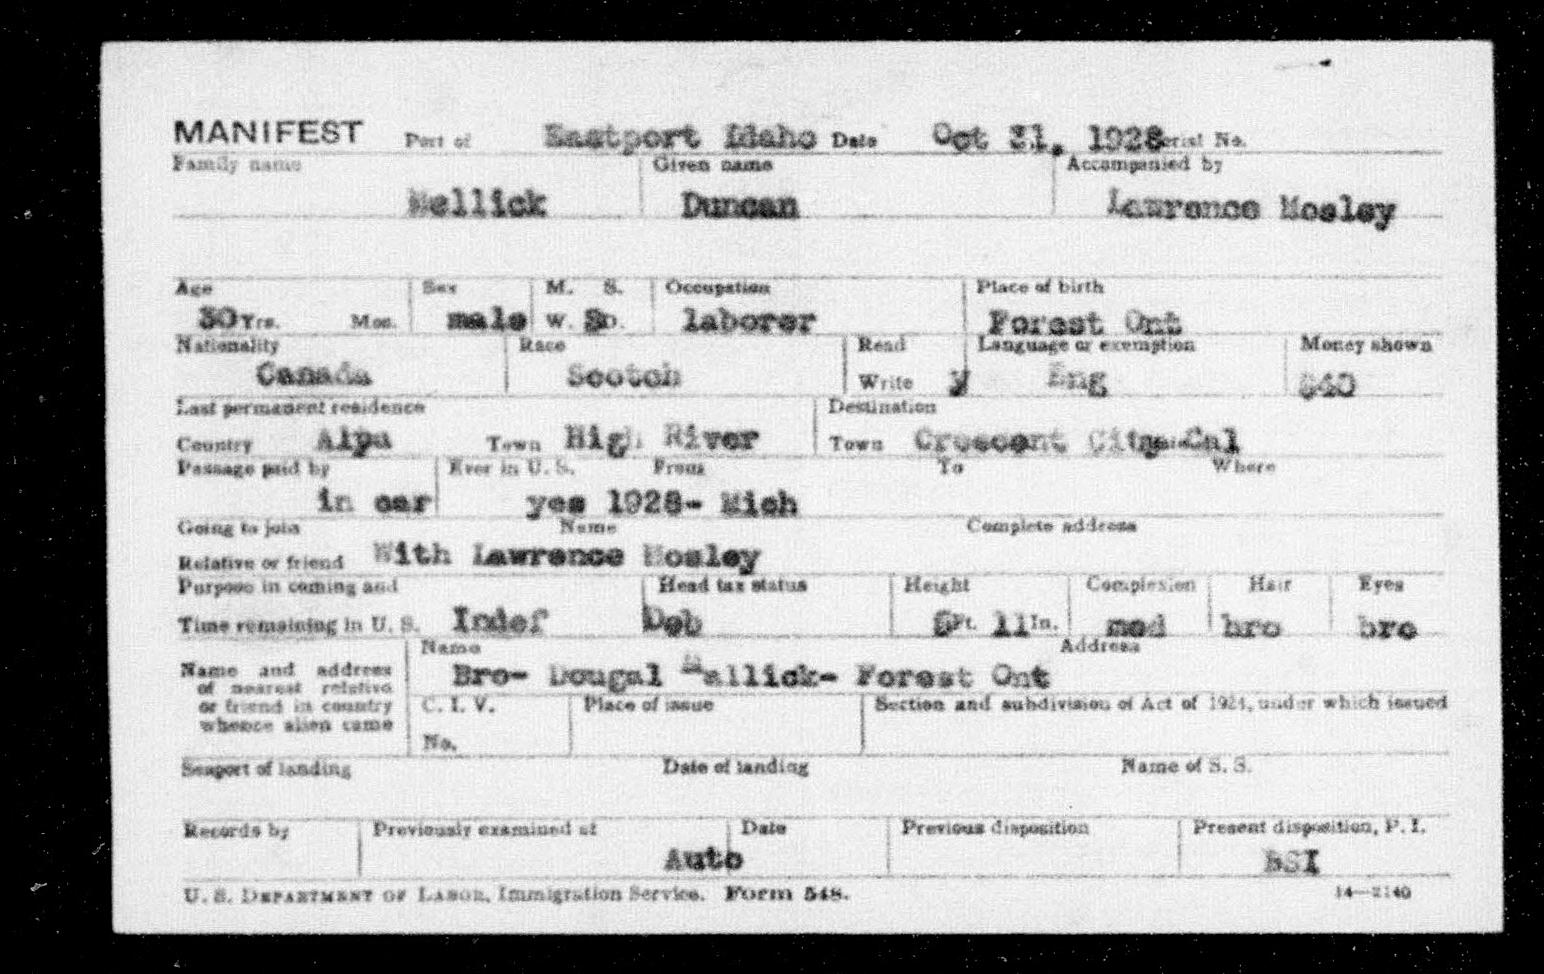 MANIFEST Port of Eastport Idaho Date Oct 31, 1928 Serial No.
Family name Given name Accompanied by
Mellick Duncan Lawrence Mosley
Age Sex M. S. Occupation Place of birth
30 Yrs. Mos. male W. D. laborer Forest Ont
Nationality Race Read Language or exemption Money shown
Canada Scotch Write y Eng $40
Last permanent residence Destination
Country Town High River Town Crescent City Cal
Passage paid by Ever in U. S. From To Where
in car yes 1928- Mich
Going to join Name Complete address
Relative or friend With Lawrence Mosley
Purpose in coming and Head tax status Height Complexion Hair Eyes
Time remaining in U. S. Indef Dep 5 Ft. 11 In. med bro bro
Name Address
Name and address of nearest relative or friend in country whence alien came
Bro- Dougal Mallick- Forest Ont
C. I. V. Place of issue Section and subdivision of Act of 1924, under which issued
No.
Seaport of landing Date of landing Name of S. S.
Records by Previously examined at Date Previous disposition Present disposition, P. I.
Auto BSI
U. S. DEPARTMENT OF LABOR, Immigration Service. Form 548. 14—2140